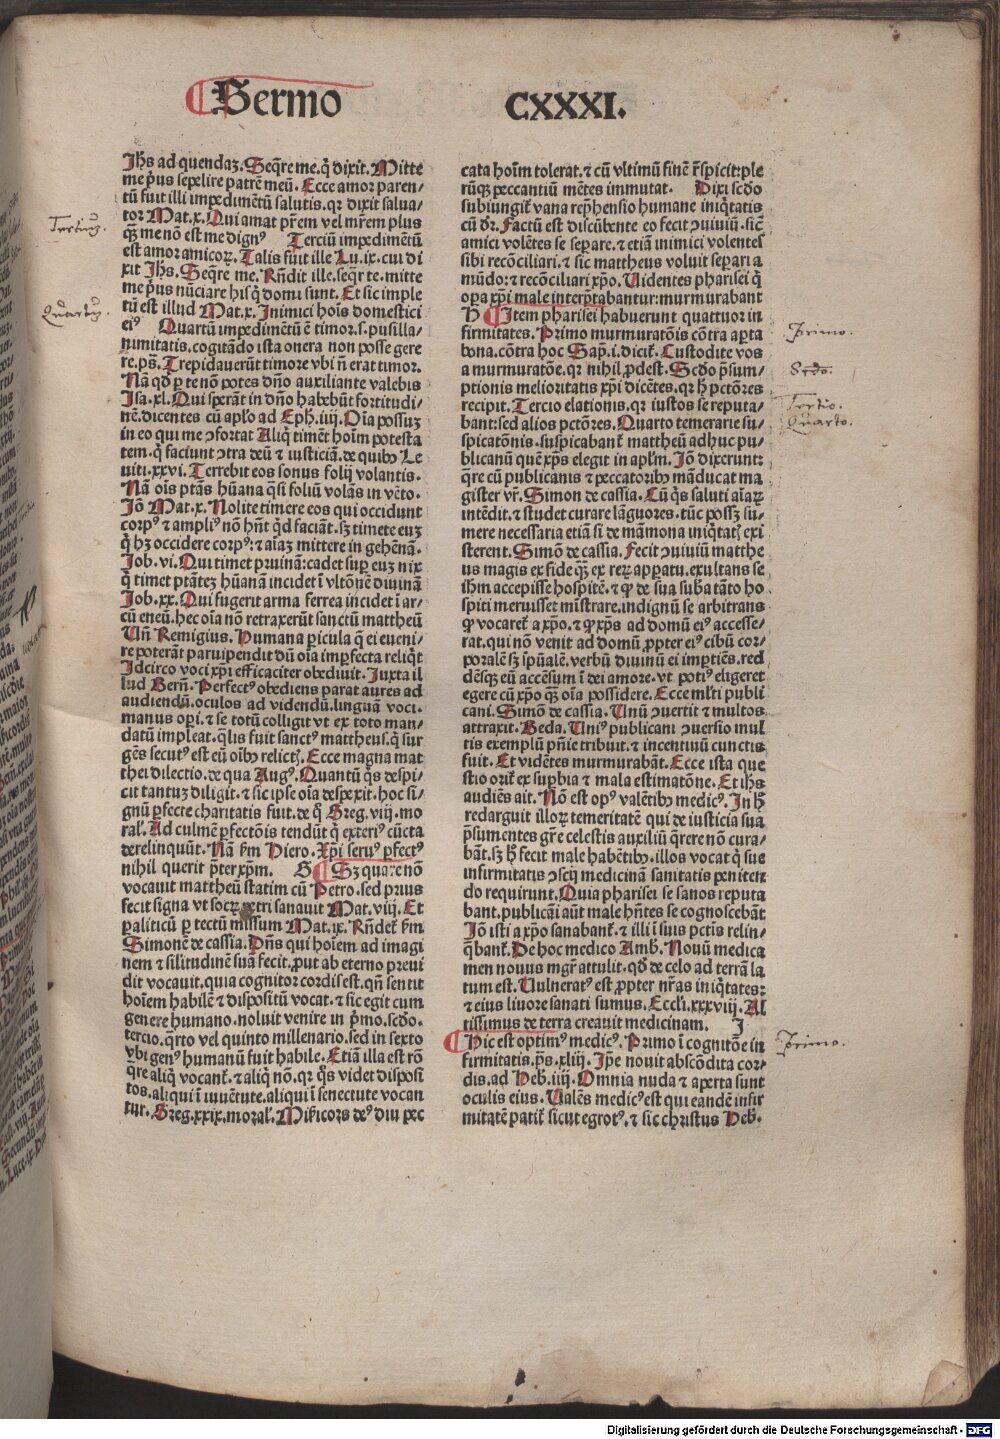 Sermo CXXXI.
Jhs ad quendaz. Seqre me. q̇ dixit. Mitte
me p̄us sepelire patrē meū. Ecce amor paren/
tū fuit illi impedimētū salutis. qꝛ dixit salua/
tor Mat. x. Qui amat pr̄em vel mr̄em plus
qꝫ me nō est me dignꝰ Terciū impedimētū
est amor amicoꝝ. Talis fuit ille Lu. ix. cui di
xit Jhs. Seqre me. Rn̄dit ille. seqr te. mitte
me p̄us nūciare his q̇ domi sunt. Et sic imple
tū est illud Mat. x. Inimici hoīs domestici
eiꝰ Quartū impedimētū ē timor. s. pusilla/
nimitatis. cogitādo ista onera non posse gere
re. ps̄. Trepidauerūt timore vbi ñ erat timor.
Nā qd̄ p te nō potes dn̄o auxiliante valebis
Isa. xl. Qui sperāt in dn̄o habebūt fortitudi/
nē. dicentes cū aplo ad Eph. iiij. Oīa possuꝫ
in eo qui me ꝯfortat Aliq̇ timēt hoīm potesta
tem. q̇ faciunt ꝯtra deū ⁊ iusticiā. de quibꝰ Le
uiti. xxvi. Terrebit eos sonus folij volantis.
Nā oīs ptās hūana qsi foliū volās in vēto.
Jō Mat. x. Nolite timere eos qui occidunt
corpꝰ ⁊ ampliꝰ nō hn̄t qd faciāt. sꝫ timete euꝫ
q̇ hꝫ occidere corpꝰ: ⁊ aīaꝫ mittere in gehēnā.
Job. vi. Qui timet pruinā: cadet sup euꝫ nix
q̇ timet ptātēꝫ hūanā incidet ī vltōnē diuinā
Job. xx. Qui fugerit arma ferrea incidet ī ar/
cū eneū. hec oīa nō retraxerūt sanctū mattheū
Un̄ Remigius. Humana picula q̄ ei eueni/
re poterāt paruipendit dū oīa imp̄fecta reliqt
Idcirco voci xp̄i efficaciter obediuit. Juxta il
lud Bern̄. Perfectꝰ obediens parat aures ad
audiendū. oculos ad videndū. linguā voci.
manus opi. ⁊ se totū colligit vt ex toto man/
datū impleat. qlis fuit sanctꝰ mattheus. q̇ sur
gēs secutꝰ est eū oībꝰ relictꝭ. Ecce magna mat
thei dilectio. de qua Augꝰ. Quantū q̇s despi/
cit tantuꝫ diligit. ⁊ sic ipse oīa despexit. hoc si/
gnū pfecte charitatis fuit. de q̇ Greg. viij. mo
ral. Ad culmē pfectōis tendūt q̇ exteriꝰ cūcta
derelinquūt. Nā fm Hiero. Xp̄i seruꝰ pfectꝰ
nihil querit p̄ter xp̄m. G Sꝫ quare nō
vocauit mattheū statim cū Petro. sed prius
fecit signa vt socꝝ petri sanauit Mat. viij. Et
paliticū p tectū missum Mat. ix. Rn̄det fm
Simonē de cassia. Dn̄s qui hoīem ad imagi
nem ⁊ silitudinē suā fecit. put ab eterno preui
dit vocauit. quia cognitor cordis est. qn̄ sentit
hoīem habilē ⁊ dispositū vocat. ⁊ sic egit cum
genere humano. noluit venire in p̄mo. scdo.
tercio. qrto vel quinto millenario. sed in sexto
vbi genꝰ humanū fuit habile. Etiā illa est rō
qre aliq̇ vocant̄. ⁊ aliq̇ nō. qꝛ q̇s videt disposi
tos. aliqui ī iuuētute. aliqui ī senectute vocan
tur. Greg. xxix. moral. Misericors deꝰ diu pec
cata hoīm tolerat. ⁊ cū vltimū finē r̄spicit: ple
rūqꝫ peccantiū mētes immutat. Dixi scdo
subiungit̄ vana repħensio humane iniqtatis
cū dr̄. Factū est discūbente eo fecit ꝯuiuiū. sic
amici volētes se separe. ⁊ etiā inimici volentes
sibi recōciliari. ⁊ sic mattheus voluit separi a
mūdo: ⁊ recōciliari xp̄o. Uidentes pharisei q̇
opa xp̄i male interptabantur: murmurabant
H Item pharisei habuerunt quattuor in
firmitates. Primo murmuratōnis cōtra apta
bona. cōtra hoc Sap. i. dicit̄. Custodite vos
a murmuratōe. qꝛ nihil pdest. Scdo p̄sum/
ptionis melioritatis xp̄i dicētes. qꝛ ħ pctōres
recipit. Tercio elationis. qꝛ iustos se reputa/
bant: sed alios pctōres. Quarto temerarie su/
spicatōnis. suspicabant̄ mattheū adhuc pu/
blicanū quē xp̄s elegit in aplm. Jō dixerunt:
qre cū publicanis ⁊ peccatoribꝰ māducat ma
gister vr̄. Simon de cassia. Cū q̇s saluti aīaꝝ
intēdit. ⁊ studet curare lāguores. tūc possꝫ su/
mere necessaria etiā si de māmona iniqtatꝭ exi
sterent. Simō de cassia. Fecit ꝯuiuiū matthe
us magis ex fide qꝫ ex reꝝ apparatu. exultans se
iħm accepisse hospitē. ⁊ ꝙ de sua suba tāto ho
spiti meruisset mīstrare. indignū se arbitrans
ꝙ vocaret̄ a xp̄o. ⁊ ꝙ xp̄s ad domū eiꝰ accesse/
rat. qui nō venit ad domū ppter eiꝰ cibū cor/
poralē sꝫ spūalē. verbū diuinū ei imptiēs. red
dēsqꝫ eū accēsum ī dei amore. vt potiꝰ eligeret
egere cū xp̄o qꝫ oīa possidere. Ecce mlti publi
cani. Simō de cassia. Unū ꝯuertit ⁊ multos
attraxit. Beda. Uniꝰ publicani ꝯuersio mul
tis exemplū pn̄ie tribuit. ⁊ incentiuū cunctis
fuit. Et vidētes murmurabāt. Ecce ista que
stio orit̄ ex supbia ⁊ mala estimatōne. Et iħs
audiēs ait. Nō est opꝰ valētibꝰ medicꝰ. In ħ
redarguit illoꝝ temeritatē qui de iusticia sua
p̄sumentes gr̄e celestis auxiliū qrere nō cura/
bāt. sꝫ ħ fecit male habētibꝰ. illos vocat q̇ sue
infirmitatis ꝯscij medicinā sanitatis peniten/
do requirunt. Quia pharisei se sanos reputa
bant. publicāi aūt male hn̄tes se cognoscebāt
Jō isti a xp̄o sanabant̄. ⁊ illi ī suis pctis relin/
qbant̄. De hoc medico Amb. Nouū medica
men nouus mgr̄ attulit. qd̄ de celo ad terrā la
tum est. Uulneratꝰ est ppter nr̄as iniqtates:
⁊ eius liuore sanati sumus. Eccli. xxxviij. Al
tissimus de terra creauit medicinam. J
Hic est optimꝰ medicꝰ. Primo ī cognitōe in
firmitatis. ps̄. xliij. Ipe nouit abscōdita cor/
dis. ad Heb. iiij. Omnia nuda ⁊ aperta sunt
oculis eius. Ualēs medicꝰ est qui eandē infir
mitatē patit̄ sicut egrotꝰ. ⁊ sic christus Heb.
Tertiū.
Quartū.
Primo.
Scdo.
Tertio.
Quarto.
Primo.
Digitalisierung gefördert durch die Deutsche Forschungsgemeinschaft - DFG